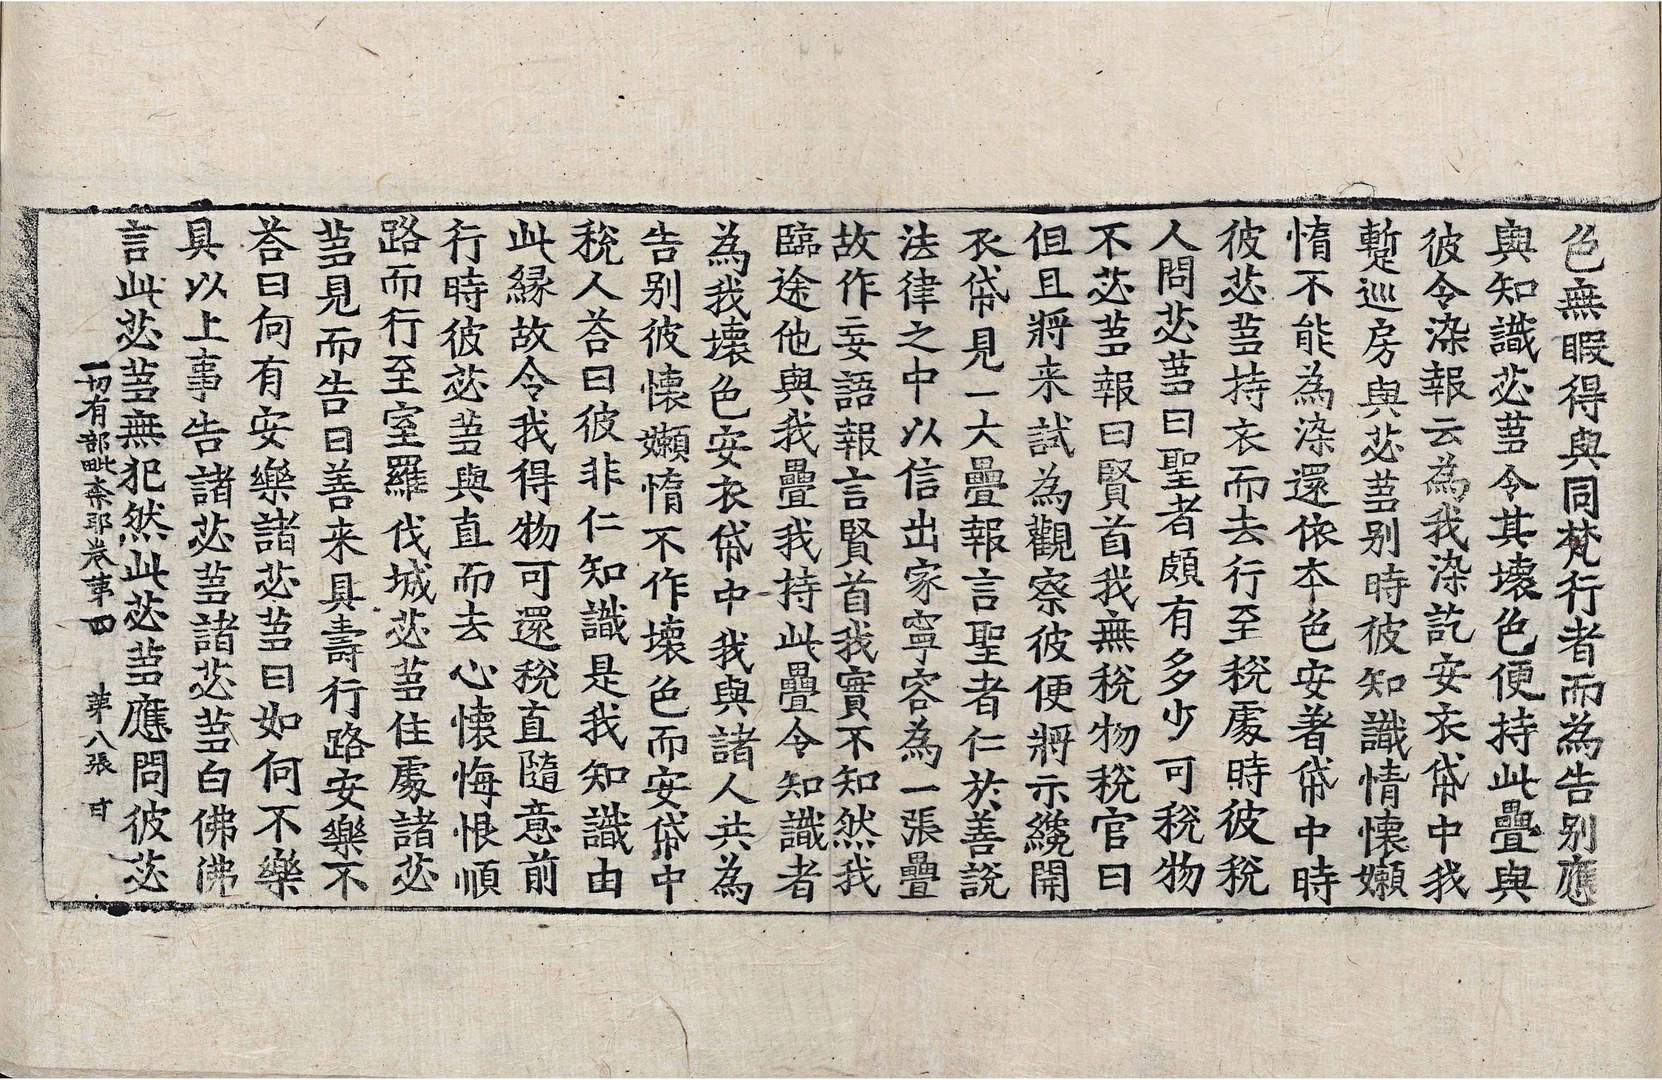 色無暇得與同梵行者而為告别應
與知識苾蒭令其壞色便持此疊與
彼令染報云為我染訖安衣帒中我
蹔巡房與苾蒭别時彼知識情懷嬾
惰不能為染還依本色安著帒中時
彼苾蒭持衣而去行至稅處時彼稅
人問苾蒭曰聖者頗有多少可稅物
不苾蒭報曰賢首我無稅物稅官曰
但且將来試為觀察彼便將示纔開
衣帒見一大疊報言聖者仁於善說
法律之中以信出家寧容為一張疊
故作妄語報言賢首我實不知然我
臨途他與我疊我持此疊令知識者
為我壞色安衣帒中我與諸人共為
告别彼懷嬾惰不作壞色而安帒中
稅人荅曰彼非仁知識是我知識由
此緣故令我得物可還稅直隨意前
行時彼苾蒭與直而去心懷悔恨順
路而行至室羅伐城苾蒭住處諸苾
蒭見而告曰善来具壽行路安樂不
荅曰何有安樂諸苾蒭曰如何不樂
具以上事告諸苾蒭諸苾蒭白佛佛
言此苾蒭無犯然此苾蒭應問彼苾
一切有部毗柰耶卷第四 第八張 甘